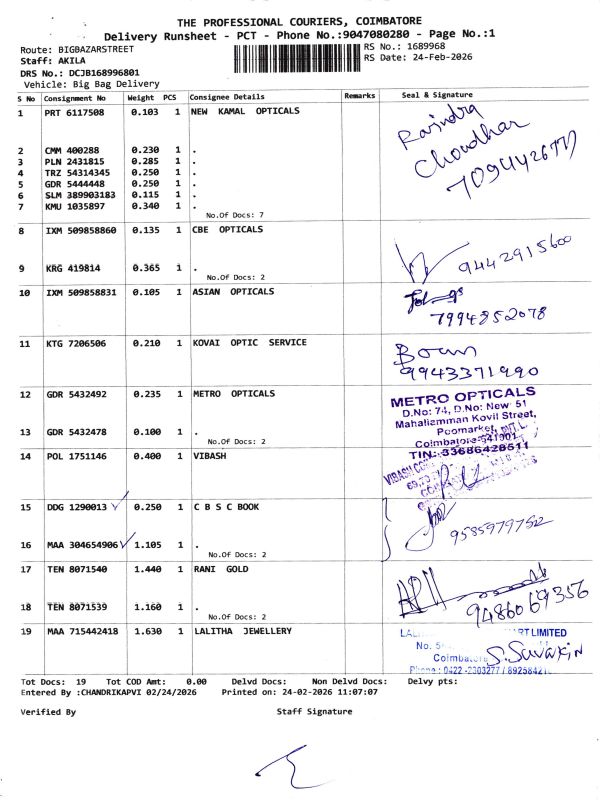 THE PROFESSIONAL COURIERS, COIMBATORE
Delivery Runsheet - PCT - Phone No.:9047080280 - Page No.:1
Route: BIGBAZARSTREET
RS No.: 1689968
Staff: AKILA
RS Date: 24-Feb-2026
DRS No.: DCJB168996801
Vehicle: Big Bag Delivery
S No Consignment No Weight PCS Consignee Details Remarks Seal & Signature
1 PRT 6117508 0.103 1 NEW KAMAL OPTICALS
Ravindra
Choudhar
7094426777
2 CMM 400288 0.230 1 .
3 PLN 2431815 0.285 1 .
4 TRZ 54314345 0.250 1 .
5 GDR 5444448 0.250 1 .
6 SLM 389903183 0.115 1 .
7 KMU 1035897 0.340 1 .
No.Of Docs: 7
8 IXM 509858860 0.135 1 CBE OPTICALS
9442915600
9 KRG 419814 0.365 1 .
No.Of Docs: 2
10 IXM 509858831 0.105 1 ASIAN OPTICALS
7994852078
11 KTG 7206506 0.210 1 KOVAI OPTIC SERVICE
9943371990
12 GDR 5432492 0.235 1 METRO OPTICALS
METRO OPTICALS
D.No: 74, D.No: New 51
Mahaliamman Kovil Street,
Poomarket,
Coimbatore-641001
TIN: 33686420511
13 GDR 5432478 0.100 1 .
No.Of Docs: 2
14 POL 1751146 0.400 1 VIBASH
VIBASH
15 DDG 1290013 0.250 1 C B S C BOOK
9585979752
16 MAA 304654906 1.105 1 .
No.Of Docs: 2
17 TEN 8071540 1.440 1 RANI GOLD
9486069356
18 TEN 8071539 1.160 1 .
No.Of Docs: 2
19 MAA 715442418 1.630 1 LALITHA JEWELLERY
LIMITED
No.
Coimbatore
Phone : 0422 -2303277 /
Tot Docs: 19 Tot COD Amt: 0.00 Delvd Docs: Non Delvd Docs: Delvy pts:
Entered By :CHANDRIKAPVI 02/24/2026 Printed on: 24-02-2026 11:07:07
Verified By Staff Signature